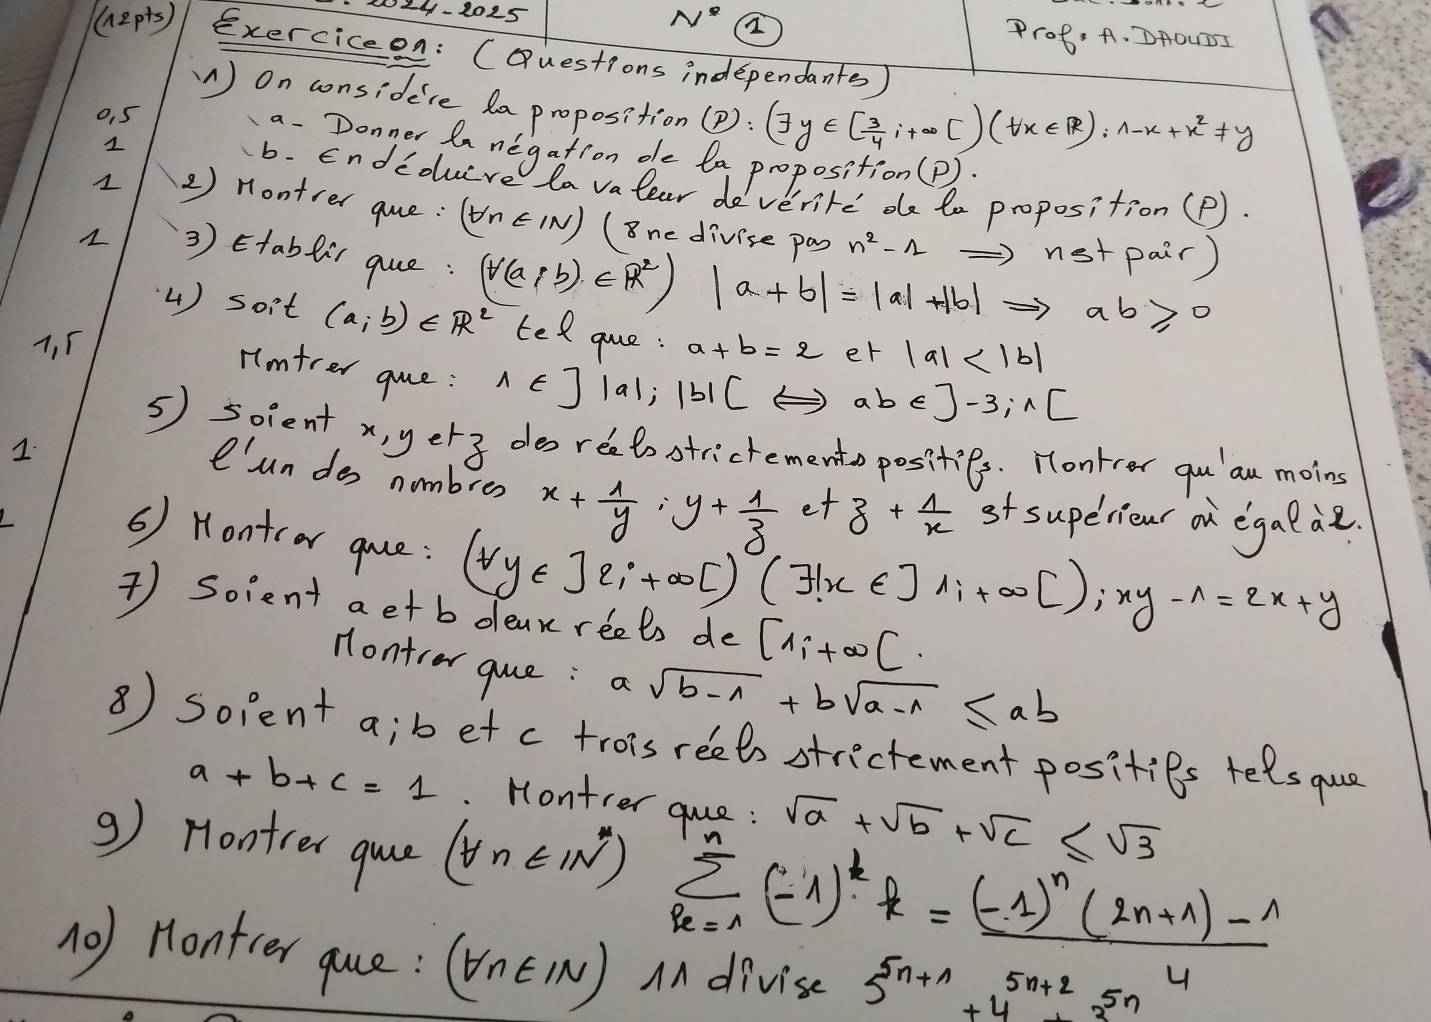 2024-2025 N° 1 Prof. A. DAOUDI
(12pts) Exercice 01: (Questions indépendantes)
1) On considère la proposition (P): (∃y ∈ [3/4; +∞[) (∀x ∈ ℝ): 1-x+x² ≠ y
0,5 a- Donner la négation de la proposition (P).
1 b- En déduire la valeur de vérité de la proposition (P).
1 2) Montrer que: (∀n ∈ IN) (8 ne divise pas n²-1 ⟹ n est pair)
1 3) Etablir que: (∀(a;b) ∈ ℝ²) |a+b| = |a|+|b| ⟹ ab ≥ 0
4) Soit (a;b) ∈ ℝ² tel que: a+b=2 et |a| < |b|
1,5 Montrer que: 1 ∈ ]|a|; |b|[ ⟺ ab ∈ ]-3;1[
5) Soient x, y et z des réels strictements positifs. Montrer qu'au moins
1 l'un des nombres x + 1/y ; y + 1/z et z + 1/x est supérieur où égal à 2.
6) Montrer que: (∀y ∈ ]2;+∞[) (∃!x ∈ ]1;+∞[); xy-1 = 2x+y
7) Soient a et b deux réels de [1;+∞[.
Montrer que: a√(b-1) + b√(a-1) ≤ ab
8) Soient a;b et c trois réels strictement positifs tels que
a+b+c = 1. Montrer que: √a + √b + √c ≤ √3
9) Montrer que (∀n ∈ IN*) ∑_{k=1}^{n} (-1)^k . k = ((-1)^n (2n+1) - 1)/4
10) Montrer que: (∀n ∈ IN) 11 divise 5^{5n+1} + 4^{5n+2} + 3^{5n}